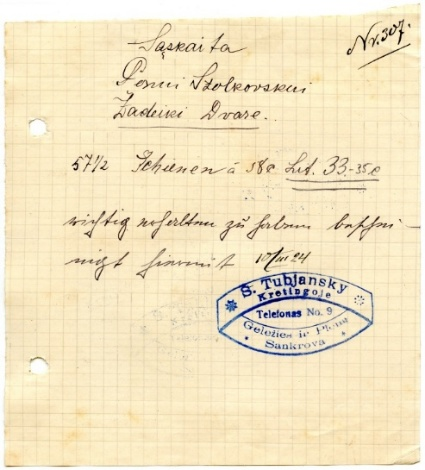 Nr. 307.
Sąskaita
Ponui Stolkovskui
Žadeiki Dvare.
57 1/2 Schienen á 58c Lit. 33.-35c
richtig erhalten zu haben beschei-
nigt hiermit 10/III 24
S. Tubjansky
Kretingoje
Telefonas No. 9
Geležies ir Plieno
Sankrova